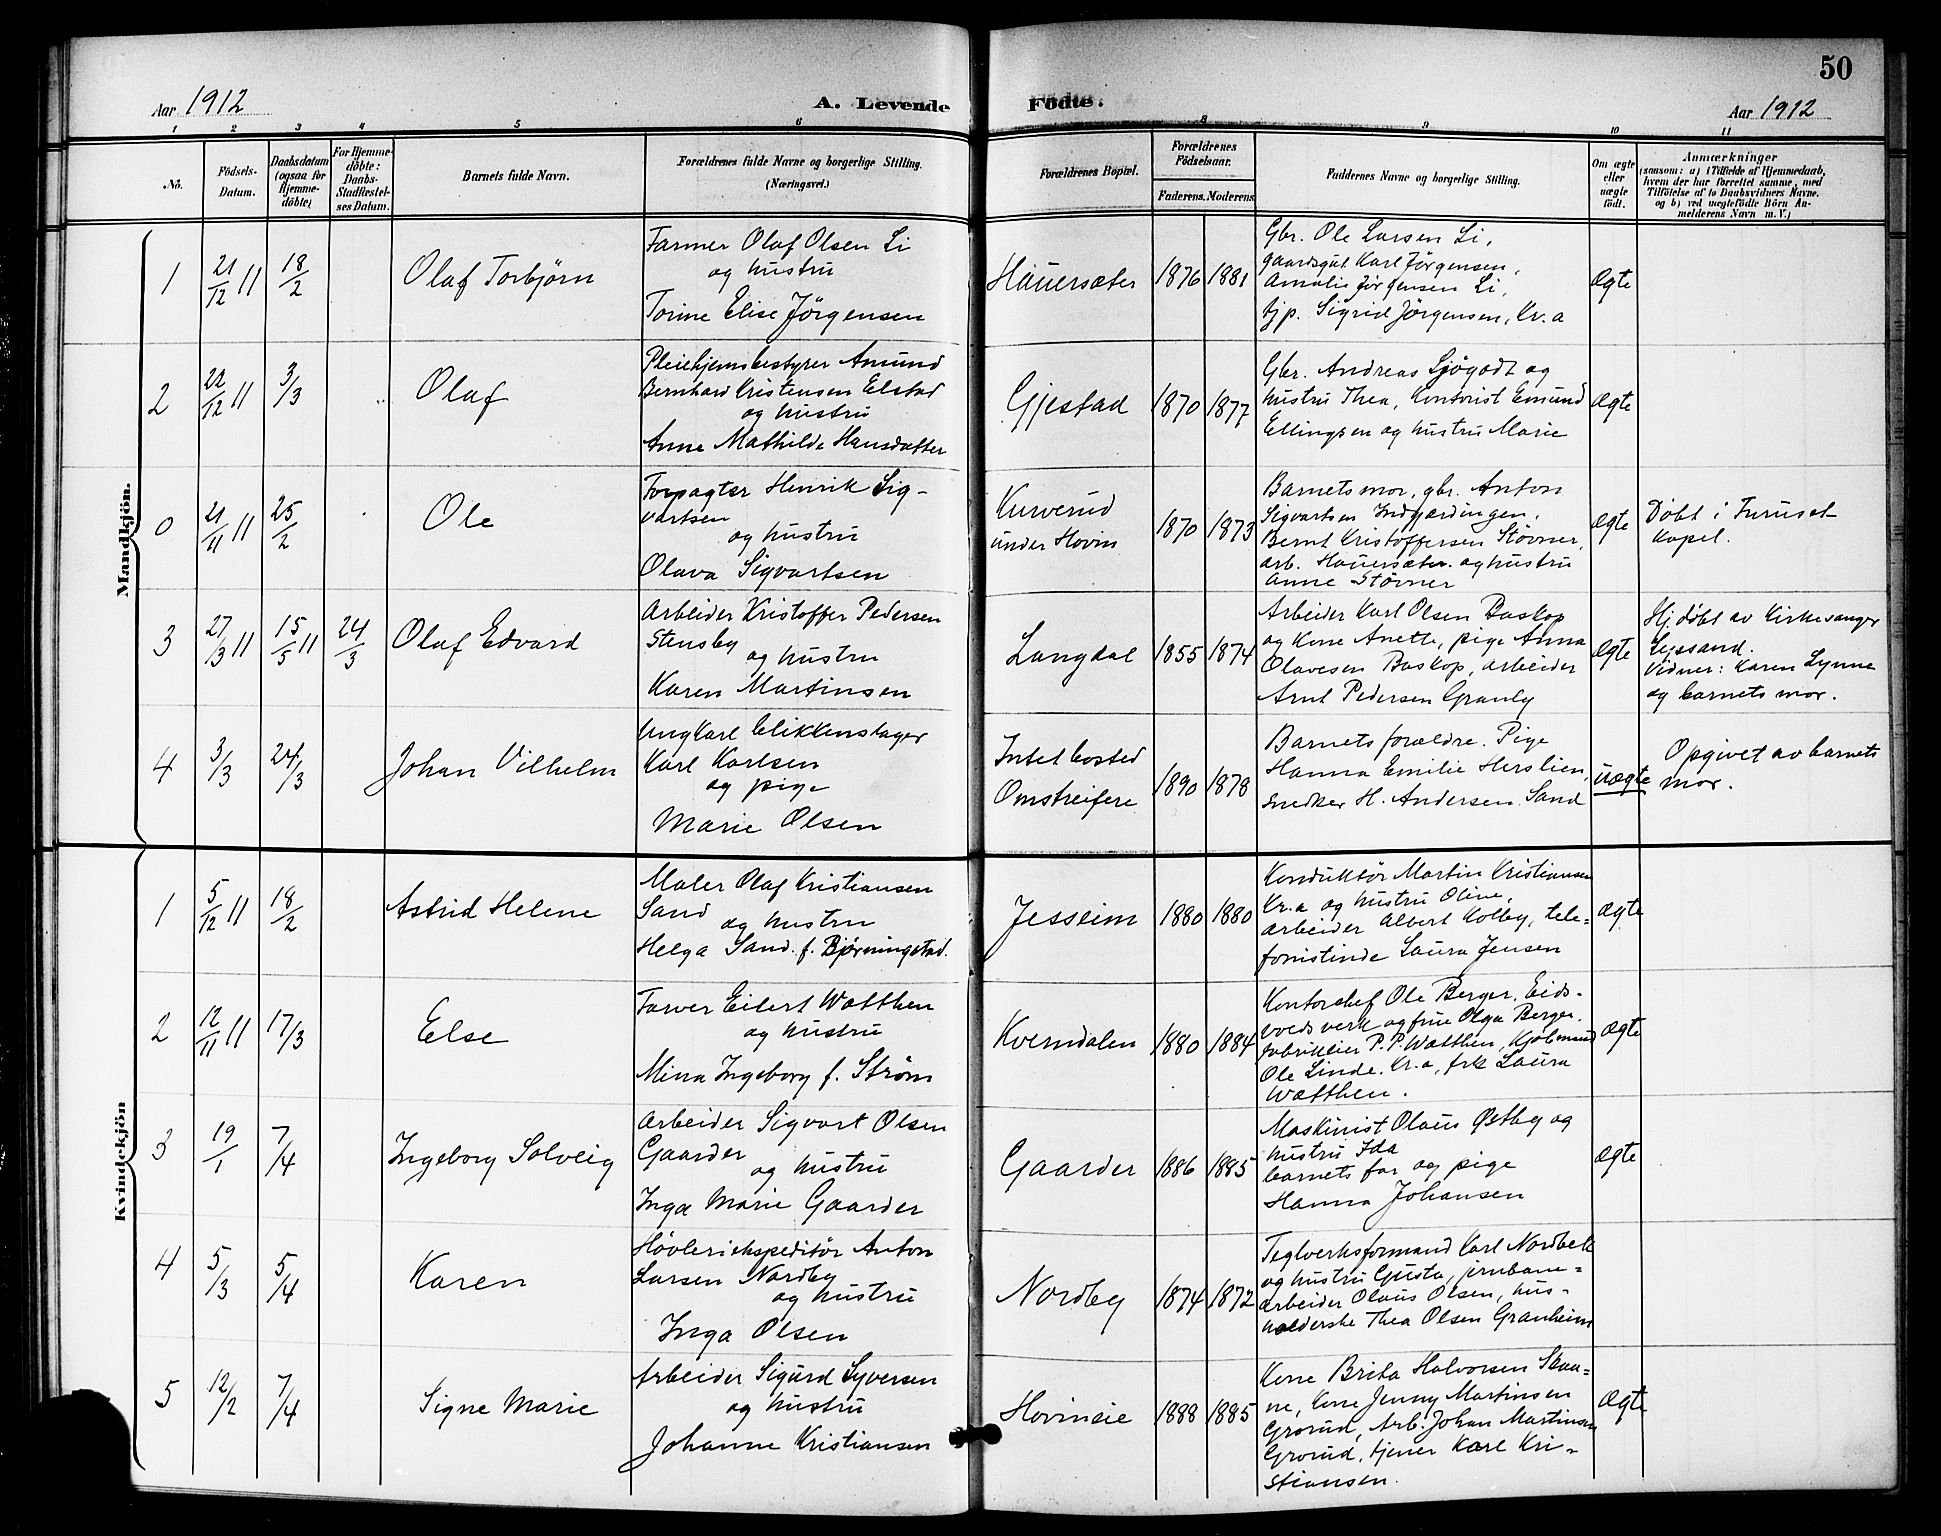 50
Aar 1912
A. Levende Födte.
Aar 1912
1 2 3 4 5 6 8 9 10 11
No.
Födsels-
Datum.
Daabsdatum
(ogsaa for
Hjemme-
döbte)
For Hjemme-
döbte:
Daabs-
Stadfæstel-
ses Datum.
Barnets fulde Navn.
Forældrenes fulde Navne og borgerlige Stilling.
(Næringsvei.)
Forældrenes Bopæl.
Forældrenes
Födselsaar.
Faderens. Moderens
Faddernes Navne og borgerlige Stilling.
Om ægte
eller
uægte
födt.
Anmærkninger
(saasom: a) i Tilfælde af Hjemmedaab,
hvem der har forrettet samme, med
Tilföielse af to Daabsvidners Navne,
og b) ved uægtefödte Börn An-
melderens Navn m. V.)
Mandkjön.
1
21/12 11
18/2
Olaf Torbjørn
Farmer Olaf Olsen Li
og hustru
Torine Elise Jørgensen
Hauersæter
1876
1881
Gbr. Ole Larsen Li,
gaardsgut Karl Jørgensen,
Amalie Jørgensen Li,
tjp. Sigrid Jørgensen, Kr.a
Ægte
2
22/12 11
3/3
Olaf
Pleiehjemsbestyrer Amund
Bernhard Kristensen Elstad
og hustru
Anne Mathilde Hansdatter
Gjestad
1870
1877
Gbr. Andreas Sjøgodt og
hustru Thea, Kontorist Emund
Ellingsen og hustru Marie
Ægte
0
21/11 11
25/2
Ole
Forpagter Henrik Sig-
vartsen
og hustru
Olava Sigvartsen
Kurverud
under Hovin
1870
1873
Barnets mor, gbr. Anton
Sigvartsen Indgjærdingen,
Bernt Kristoffersen Støvner,
arb. Hauersæter og hustru
Anne Støvner
Ægte
Døbt i Furuset
Kapel.
3
27/3 11
15/5 11
24/3
Olaf Edvard
Arbeider Kristoffer Pedersen
Stensby
og hustru
Karen Martinsen
Langdal
1855
1874
Arbeider Karl Olsen Baskop
og Kone Anette, pige Anna
Olavesen Baskop, arbeider
Arnt Pedersen Granly
Ægte
Hj. døbt av Kirkesanger
Lyssand.
Vidner: Karen Lynne
og barnets mor.
4
3/3
24/3
Johan Vilhelm
Ungkarl blikkenslager
Karl Karlsen
og pige
Marie Olsen
Intet bosted
Omstreifere
1890
1878
Barnets forældre. Pige
Hanna Emilie Herslien,
snedker H. Andersen Sand
Uægte
Opgivet av barnets
mor.
Kvindekjön
1
5/12 11
18/2
Astrid Helene
Maler Olaf Kristiansen
Sand
og hustru
Helga Sand f. Bjørningstad.
Jessheim
1880
1880
Konduktør Martin Kristiansen
Kr.a og hustru Oline,
arbeider Albert Kolby, tele=
fonistinde Laura Jensen
Ægte
2
12/11 11
17/3
Else
Farver Eilert Watthen
og hustru
Mina Ingeborg f. Strøm
Kverndalen
1880
1884
Kontorchef Ole Berger, Eids-
volds verk og frue Olga Berger,
fabrikeier P. P. Watthen, Kjøbmand
Ole Linde, Kr.a, frk Laura
Watthen.
Ægte
3
19/1
7/4
Ingeborg Solveig
Arbeider Sigvart Olsen
Gaarder
og hustru
Inga Marie Gaarder
Gaarder
1886
1885
Maskinist Olaus Østby og
hustru Ida
barnets far og pige
Hanna Johansen
Ægte
4
5/3
5/4
Karen
Høvleriekspeditør Anton
Larsen Nordby
og hustru
Inga Olsen
Nordby
1874
1872
Teglverksformand Karl Nordbek
og hustru Gusta, jernbane=
arbeider Olaus Olsen, hus-
holderske Thea Olsen Granheim
5
12/2
7/4
Signe Marie
Arbeider Sigurd Syversen
og hustru
Johanne Kristiansen
Hovineie
1888
1885
Kone Brita Halvorsen Skaa=
ne, Kone Jenny Martinsen
Grorud, Arb. Johan Martinsen
Grorud, tjener Karl Kri-
stiansen.
Ægte